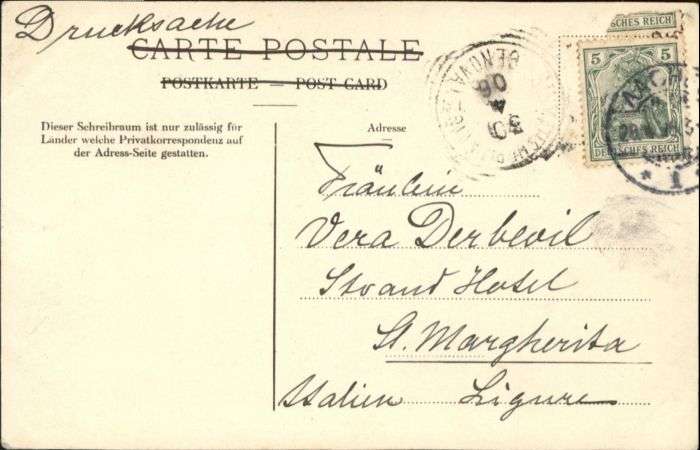 Drucksache
CARTE POSTALE
POSTKARTE — POST CARD
Dieser Schreibraum ist nur zulässig für
Länder welche Privatkorrespondenz auf
der Adress-Seite gestatten.
Adresse
Fräulein
Vera Derbevil
Strand Hotel
St. Margherita
Italien Ligure
GENOVA
06
4
30
SCHES REICH
5 5
DEUTSCHES REICH
* 1 *